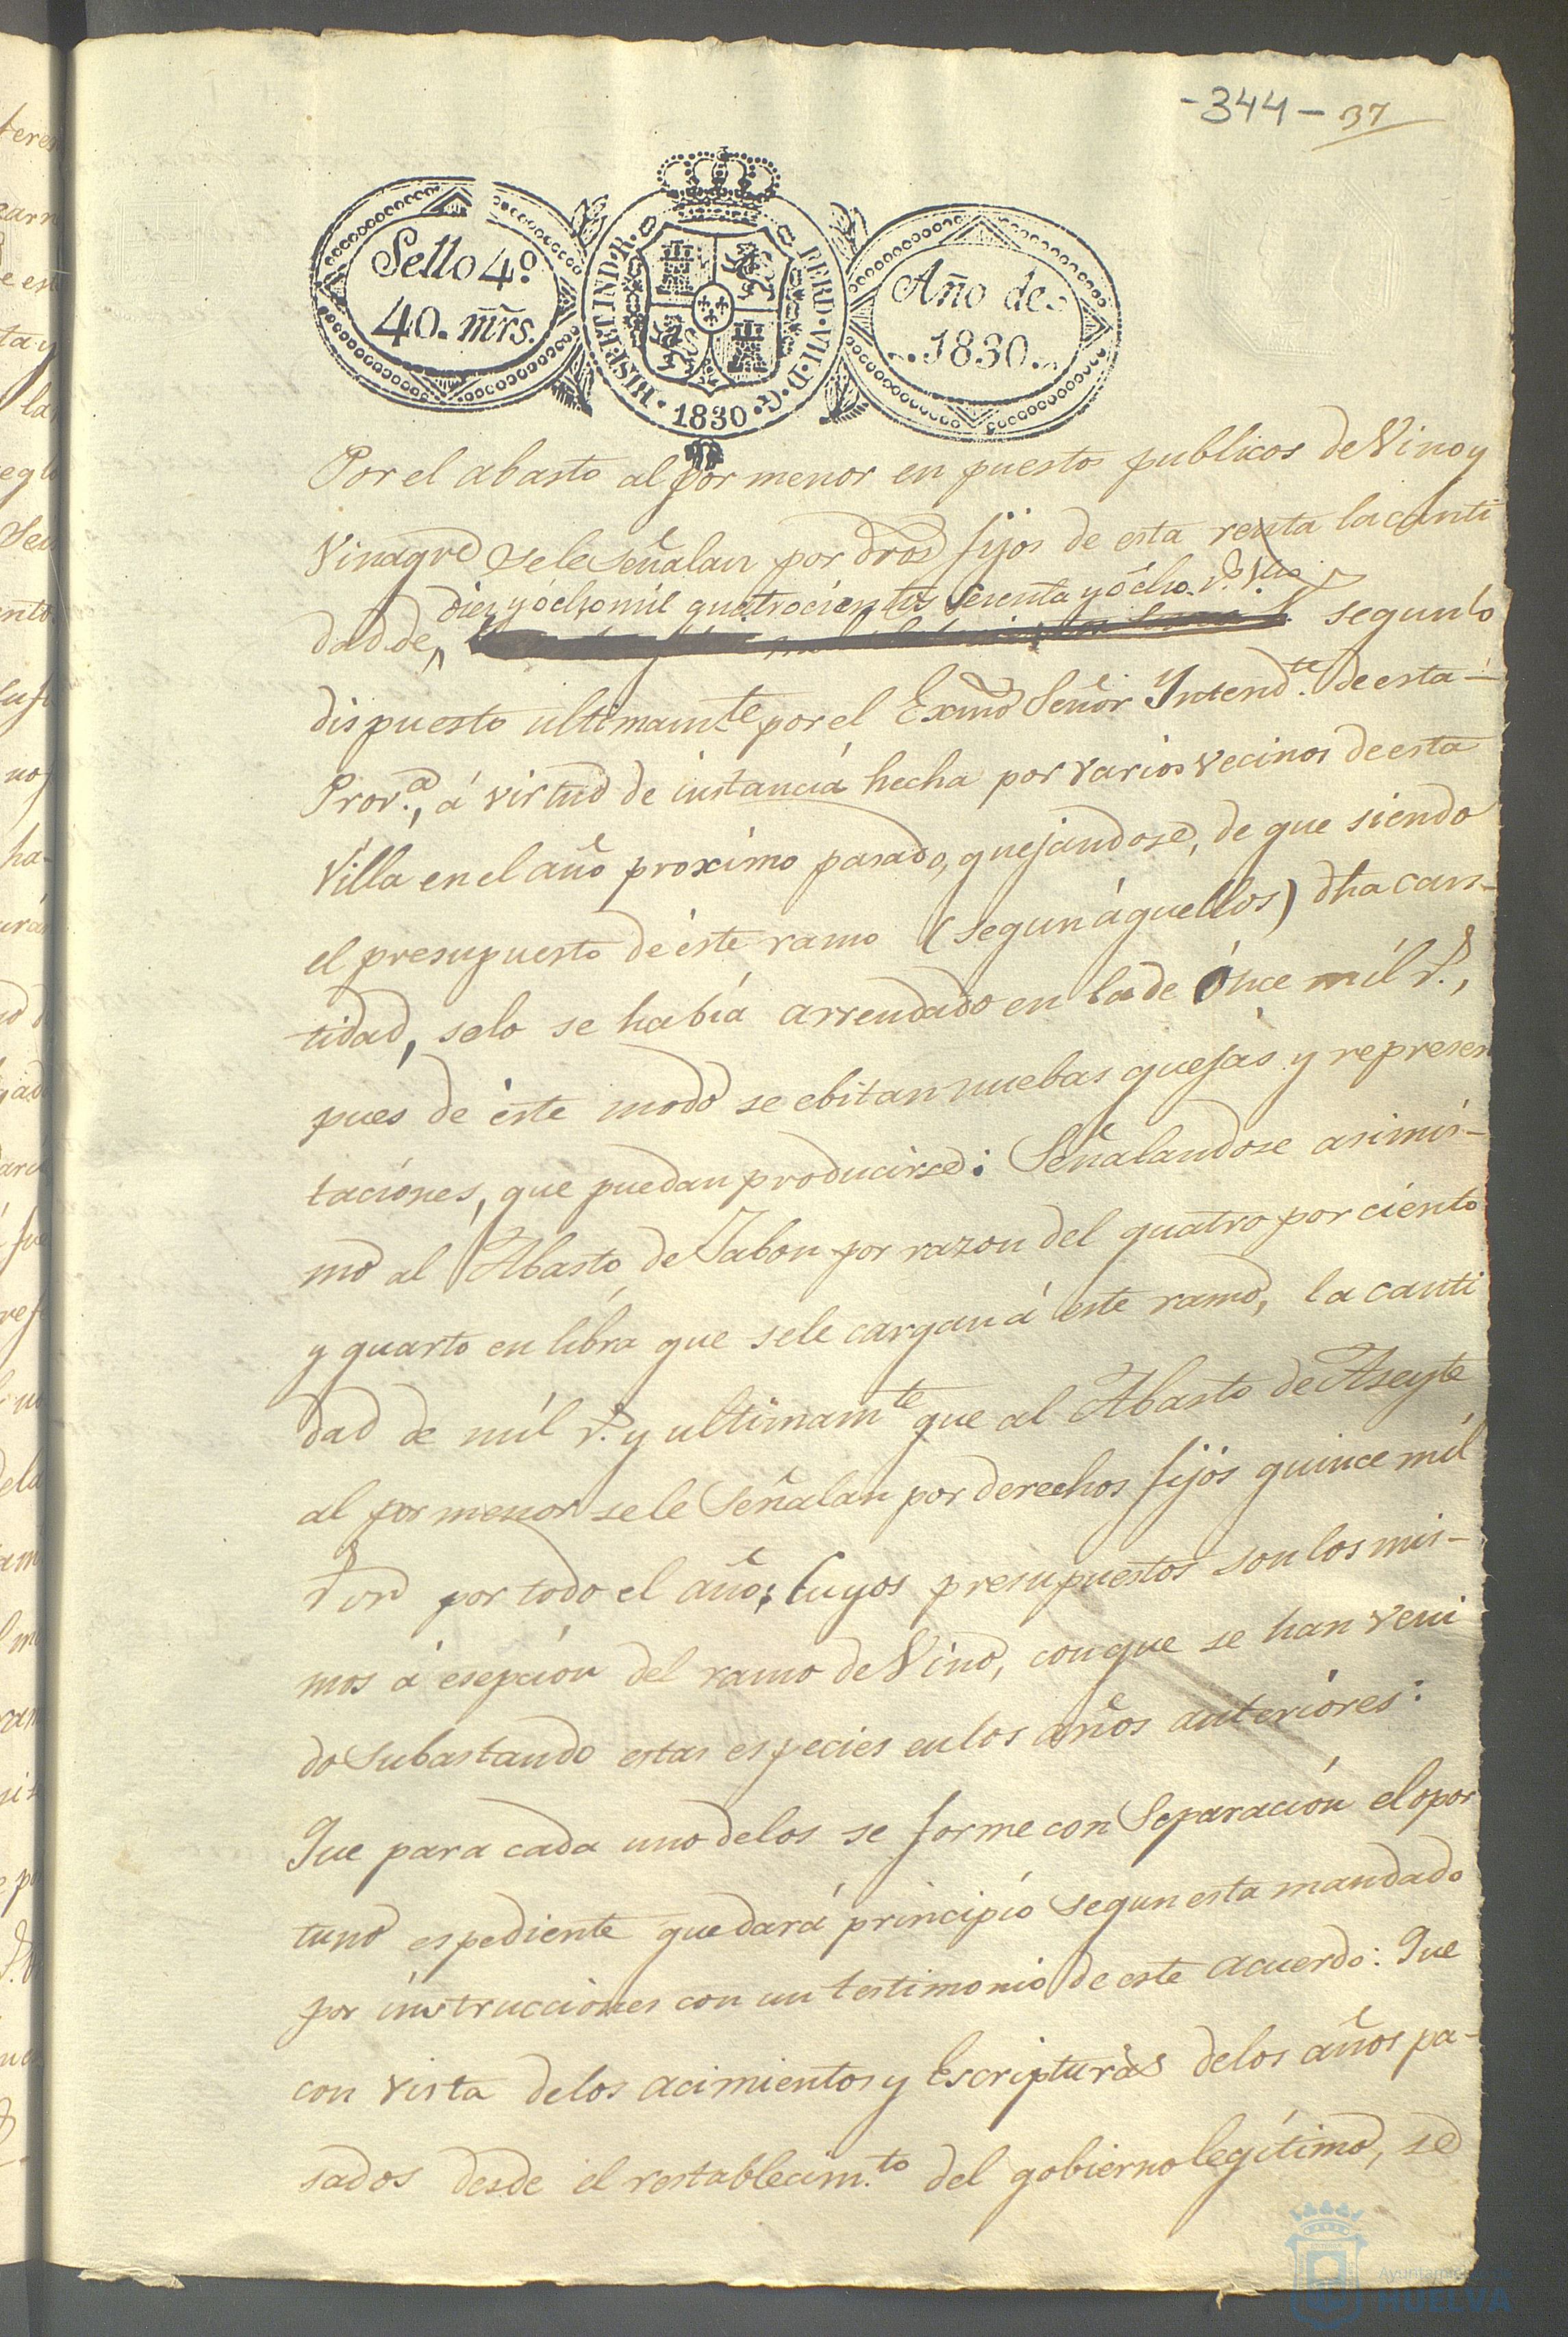 -344- 37
Sello 4º
40. mr̃s.
HISP. ET IND. R. FERD. VII. D. G. 1830
Año de
1830
Por el abasto al por menor en puestos publicos de Vino y
Vinagre sele señalan por dros fijos de esta renta la canti
diez y ócho mil quatrocientos sesenta y ócho r.s v.n
dad de, segun lo
dispuesto ultimam.te por el Exmõ Señor Yntend.te de esta
Prov.a, á virtud de instancia hecha por varios vecinos de esta
Villa en el año proximo pasado, quejandose, de que siendo
el presupuesto de éste ramo (segun áquellos) dha can-
tidad, solo se había arrendado en la de ónce mil r.s,
pues de éste modo se ebitan nuebas quejas y represen
taciónes, que puedan producirse: Señalandose asimis-
mo al Abasto de Jabon por razon del quatro por ciento
y quarto en libra que sele cargan á éste ramo, la canti
dad de mil r.s y ultimam.te que al Abasto de Aseyte
al por menor se le Señalan por derechos fijos quince mil
r.s vn por todo el año; Cuyos presupuestos son los mis-
mos á esepción del ramo de Vino, con que se han veni
do Subastando estas especies en los años anterióres:
Que para cada uno delos se forme con Separación el opor
tuno espediente que dará principio segun esta mandado
por instrucciones con un testimonio de este acuerdo: Que
con vista delos acimientos y Escripturas delos años pa-
sados desde el restablecim.to del gobierno legítimo, se
Ayuntamiento de
HUELVA